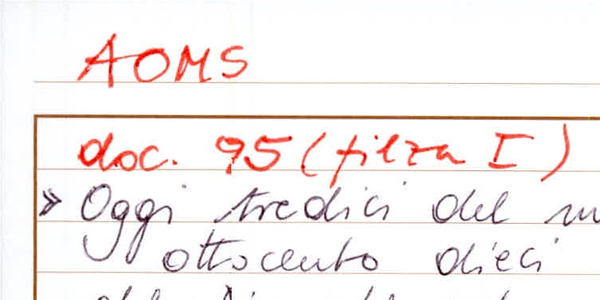 AOMS
doc. 95 (filza I)
» Oggi tredici del
ottocento dieci